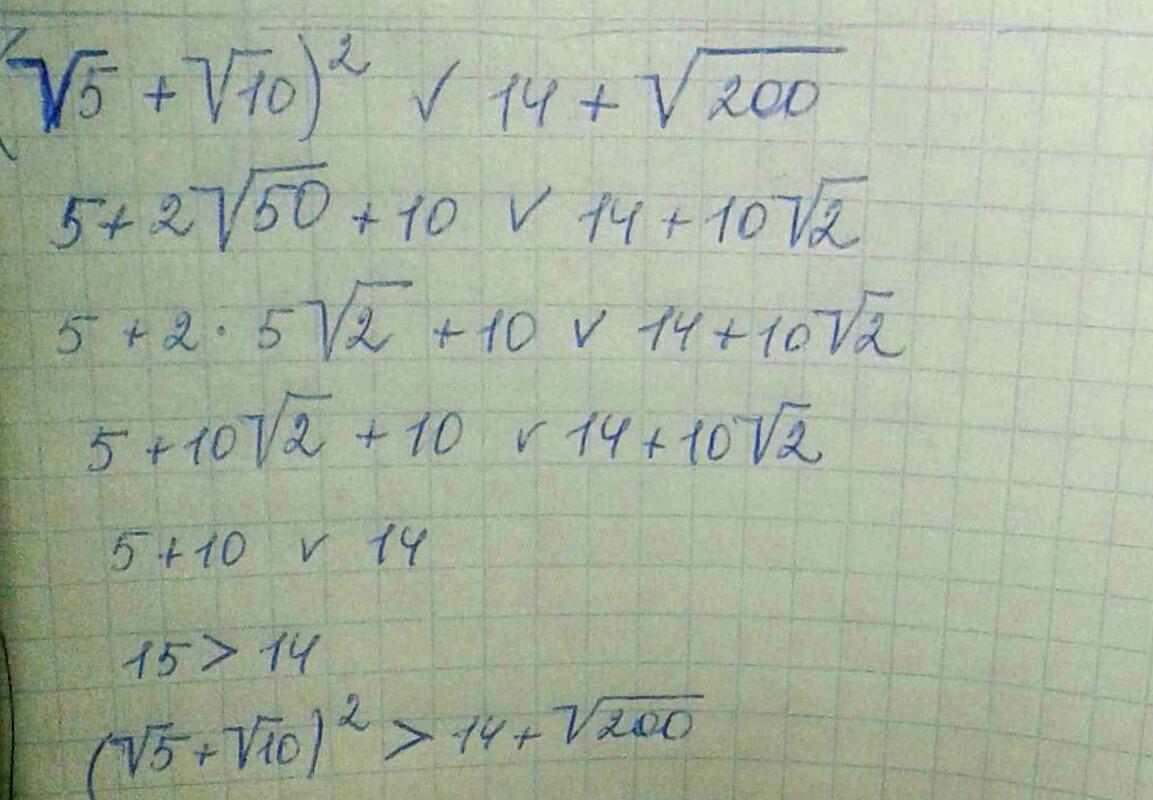 (√5 + √10)² ∨ 14 + √200
5 + 2√50 + 10 ∨ 14 + 10√2
5 + 2 · 5√2 + 10 ∨ 14 + 10√2
5 + 10√2 + 10 ∨ 14 + 10√2
5 + 10 ∨ 14
15 > 14
(√5 + √10)² > 14 + √200